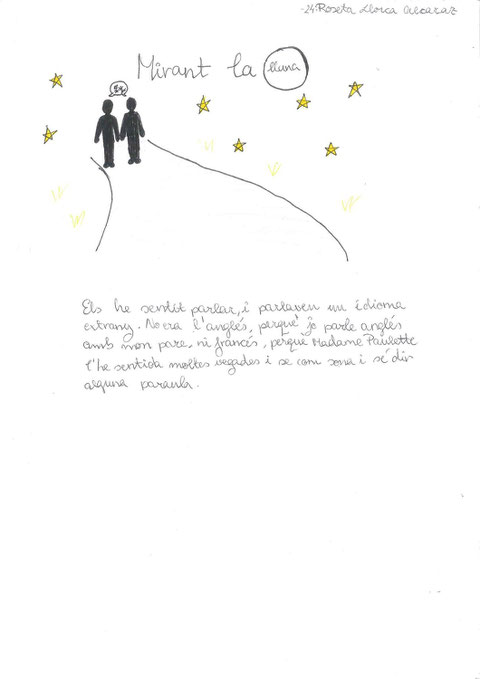 -24. Roseta Llorca Alcaraz
Mirant la lluna
Els he sentit parlar, i parlaven un idioma
extrany. No era l'anglés, perquè jo parle anglés
amb mon pare, ni francés, perquè Madame Paulette
l'he sentida moltes vegades i se com sona i sé dir
alguna paraula.